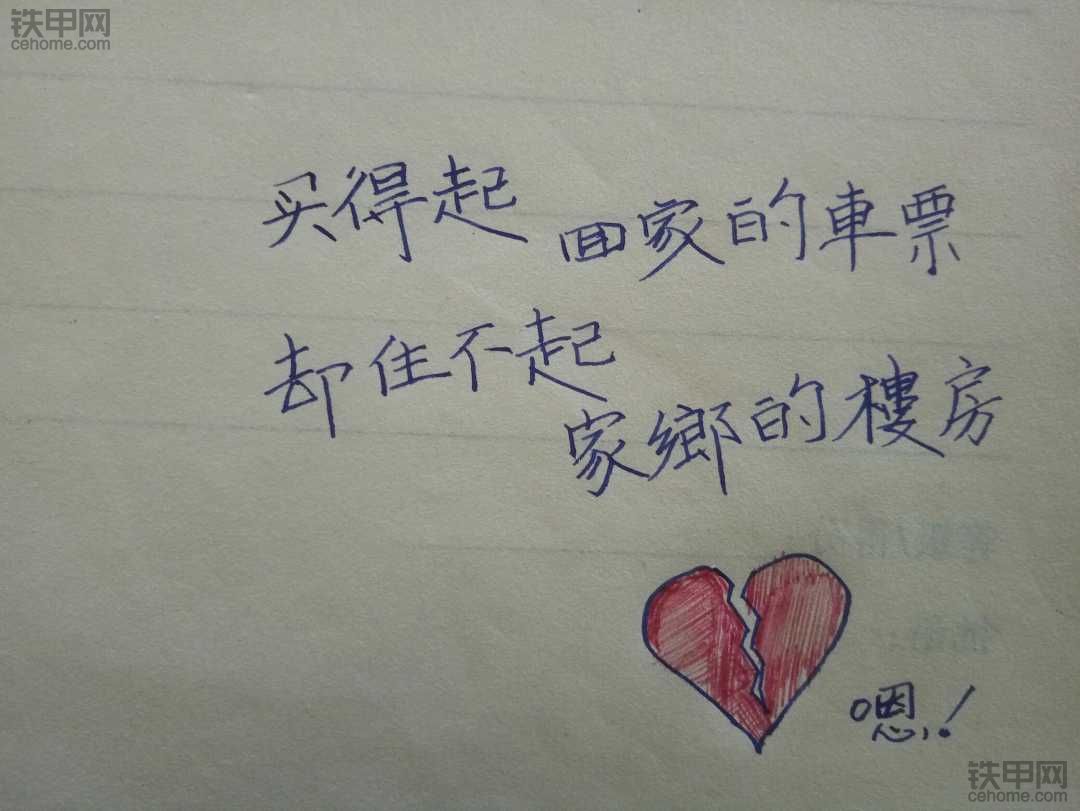 铁甲网
cehome.com
买得起 回家的車票
却住不起
家鄉的樓房
嗯,!
铁甲网
cehome.com